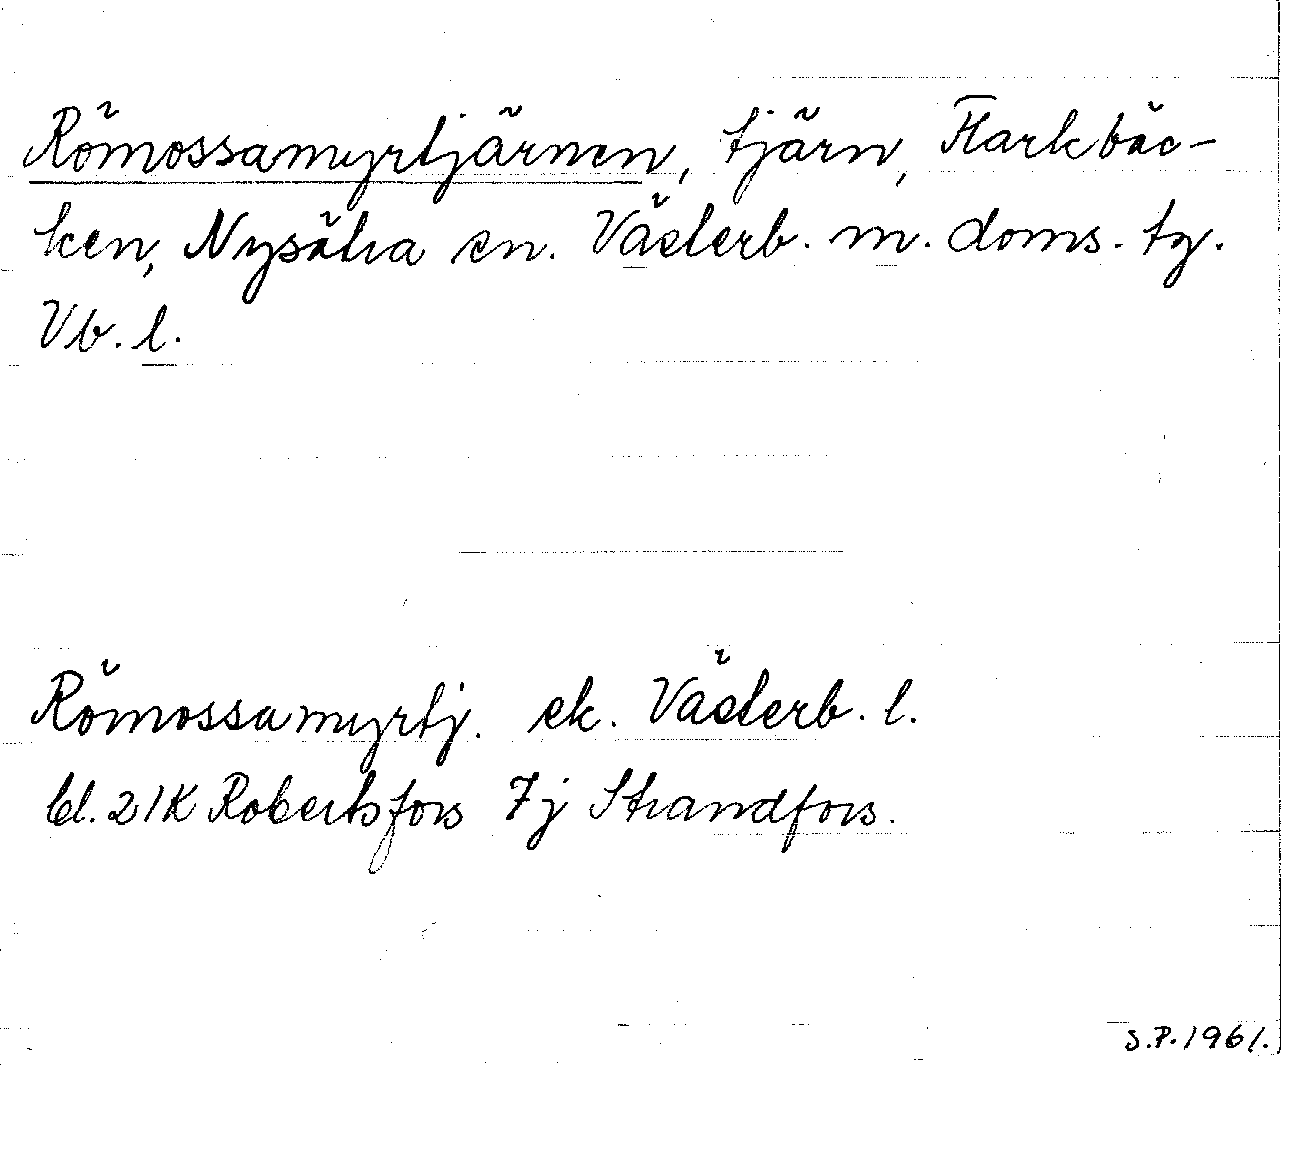 Römossamyrtjärnen, tjärn, Flarkbäc-
ken, Nysätra sn. Västerb. m. doms. tg.
Vb. l.
Römossamyrtj. ek. Västerb. l.
bl. 21K Robertsfors 7j Strandfors.
S.P. 1961.